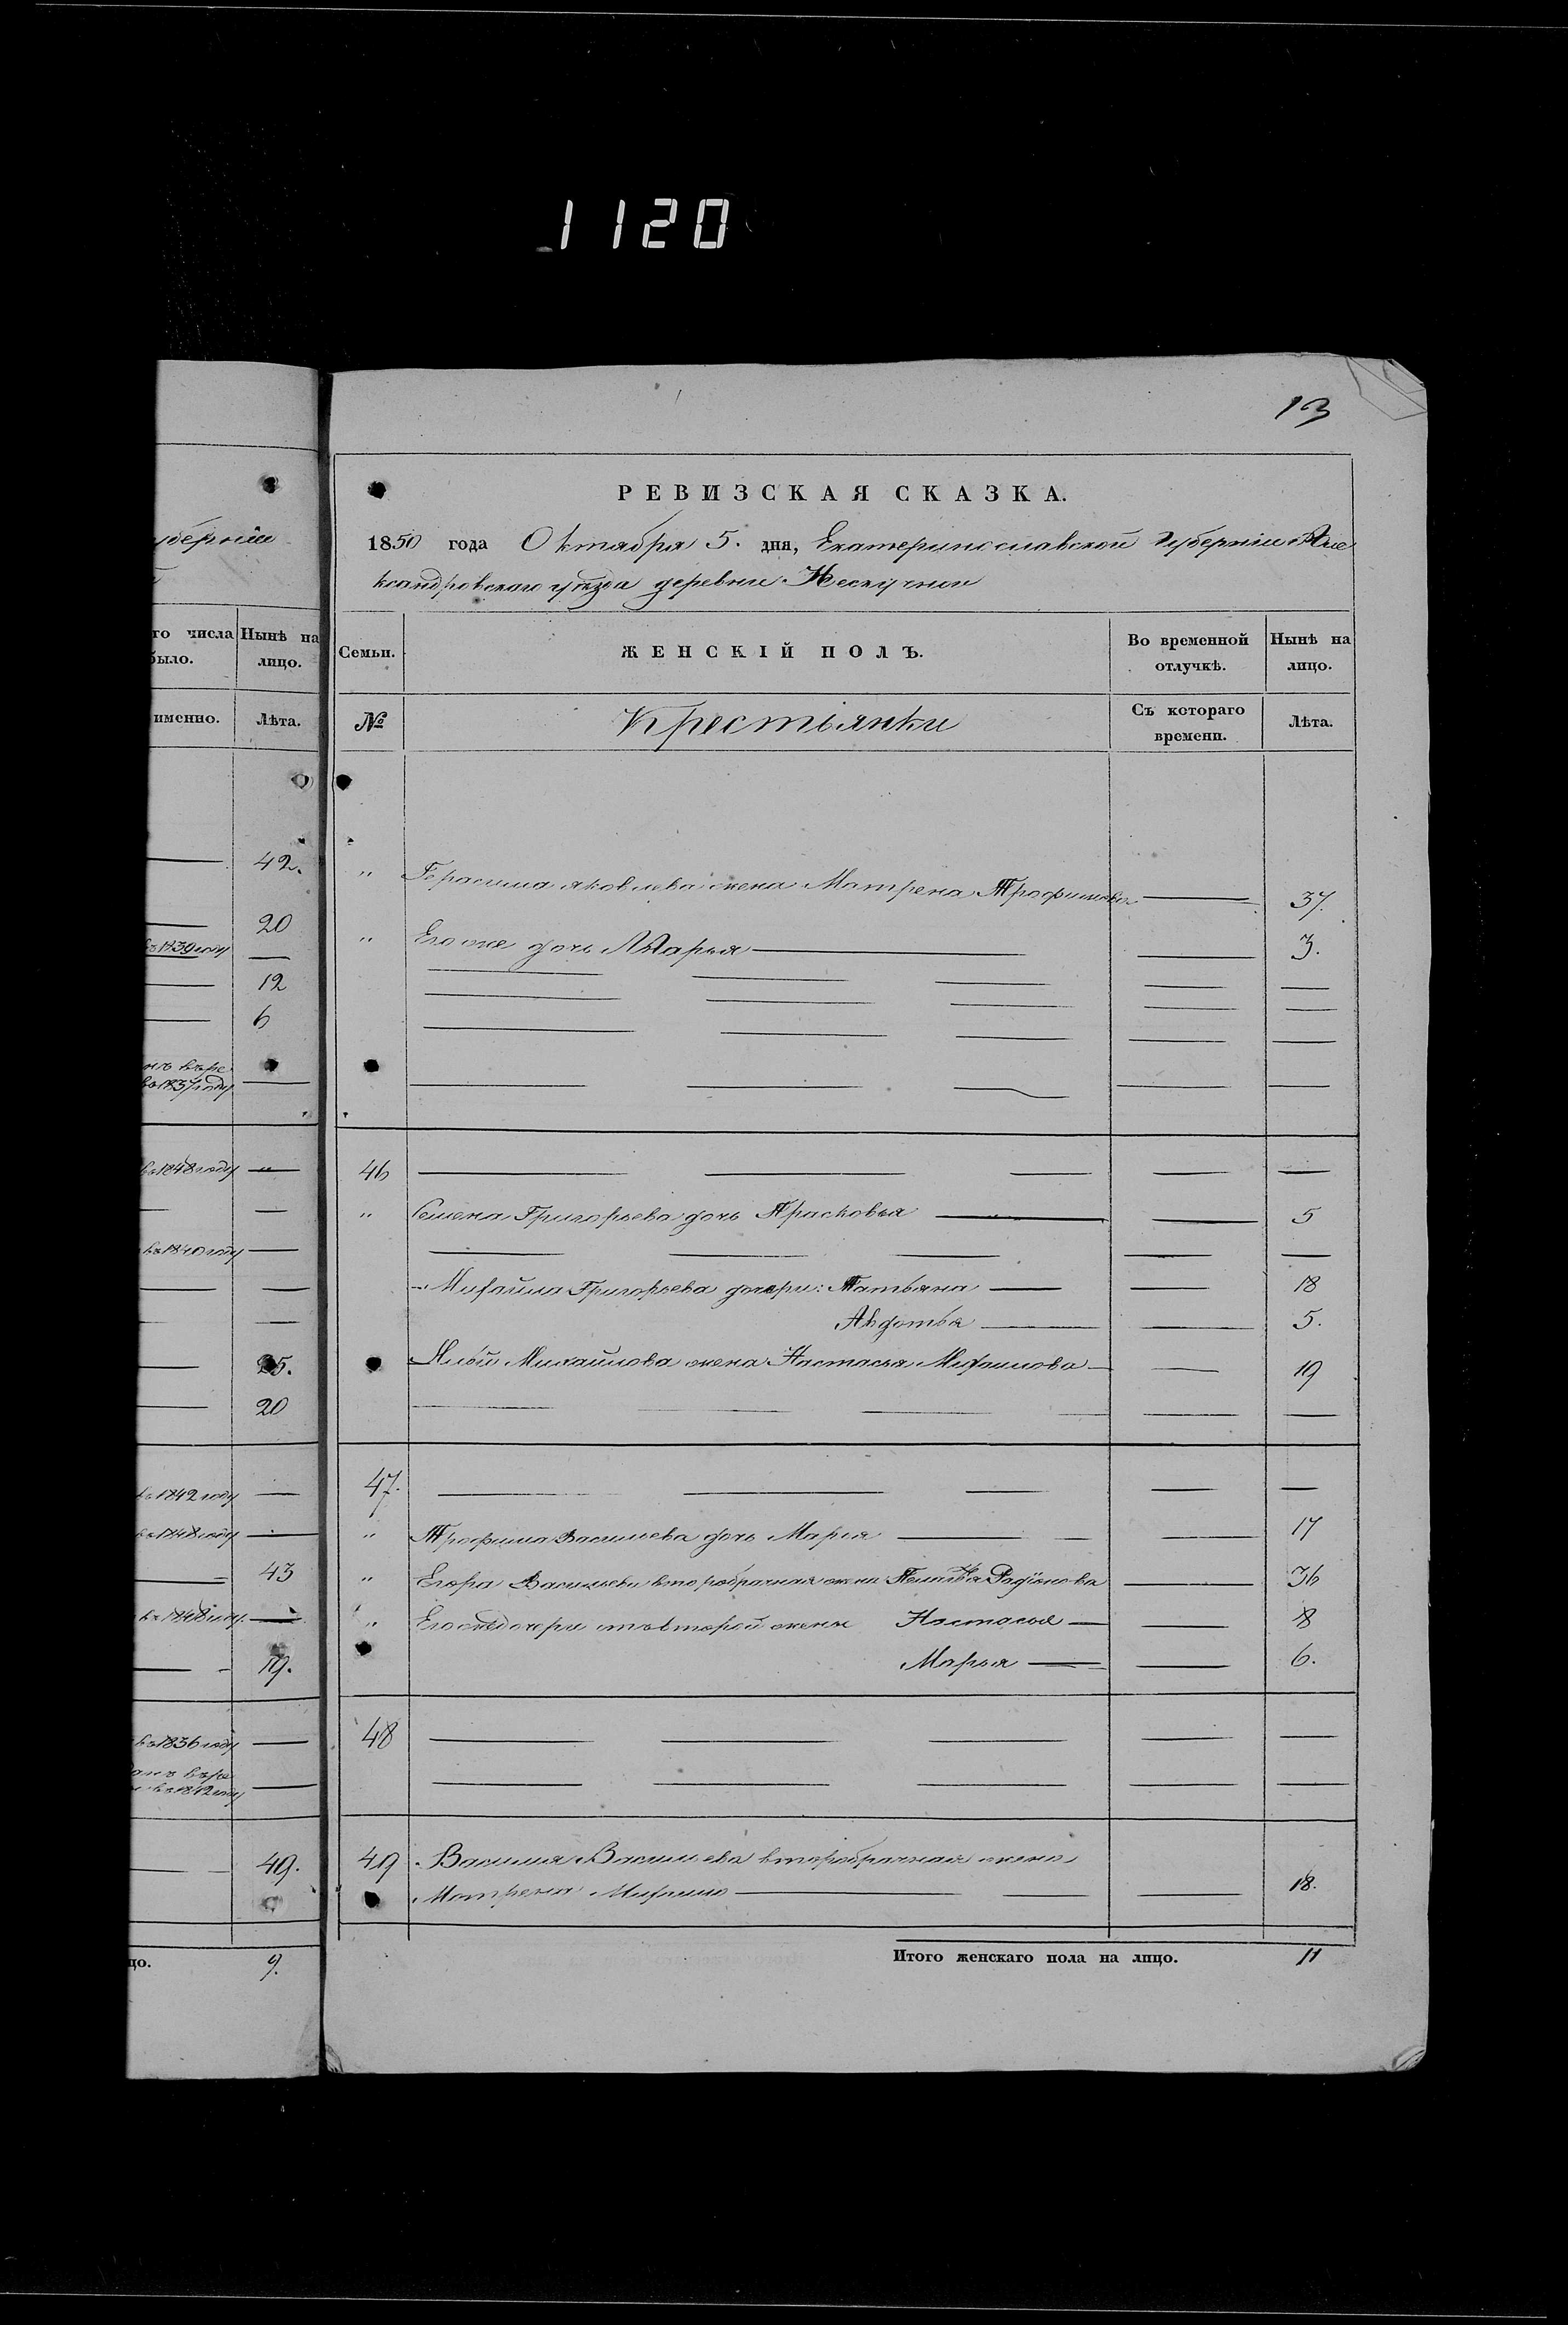 1120
13
РЕВИЗСКАЯ СКАЗКА.
1850 года Октября 5. дня, Екатеринославской Губерніи Але
ксандровскаго уѣзда деревни Нескучной
губерніи
го числа было. Нынѣ на лицо.
именно. Лѣта.
42.
20
въ 1839 году
12
6
въ 1837 году
въ 1848 году "
въ 1840 году
25.
20
въ 1842 году
въ 1848 году
43
въ 1848 году
19.
въ 1836 году
въ 1842 году
49.
цо. 9.
Семьи. ЖЕНСКІЙ ПОЛЪ. Во временной отлучкѣ. Нынѣ на лицо.
№ Крестьянки Съ котораго времени. Лѣта.
" Герасима Яковлева жена Матрена Трофимова 37.
" Его же дочь Марья 3.
46
" Семена Григорьева дочь Прасковья 5
Михайла Григорьева дочери: Татьяна 18
Авдотья 5.
Михайлова жена Настасья Михайлова 19
47.
" Трофима Васильева дочь Марья 17
" Егора Васильева второбрачная жена Пелагея Радіонова 36
" Его же дочери отъ второй жены Настасья 8
Марья 6.
48
49 Василия Васильева второбрачная жена
Матрена 18.
Итого женскаго пола на лицо. 11